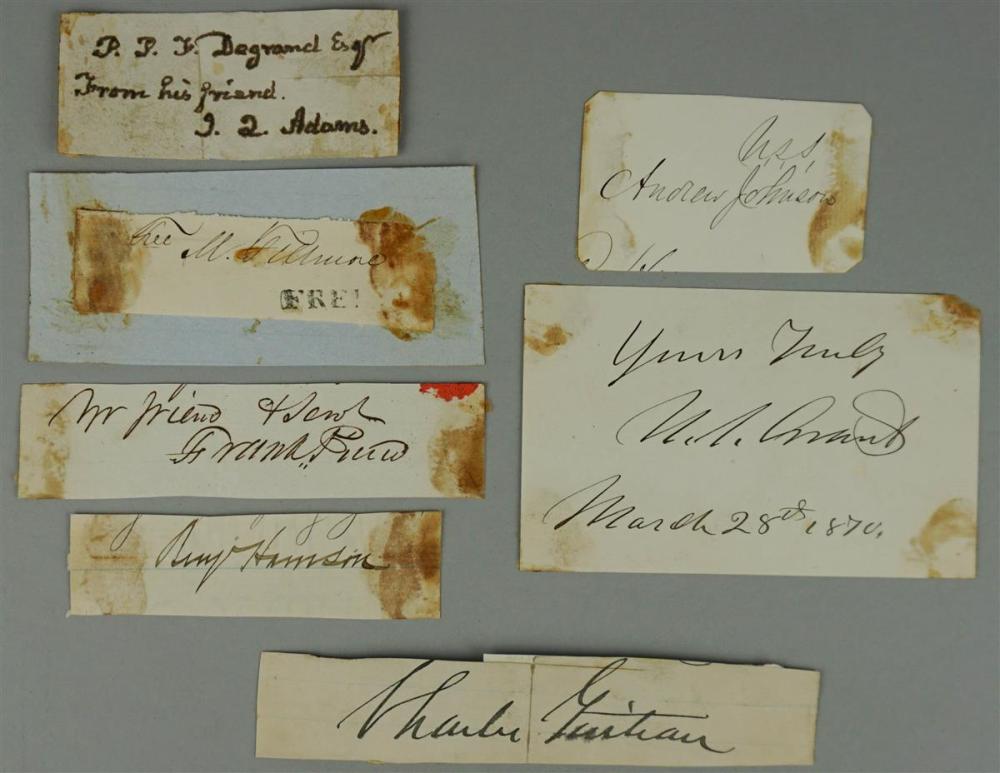 P. P. F. Degrand Esqr
From his friend.
J. Q. Adams.
Free
M. Fillmore
FREE
Yr friend & Servt
Frank. Pierce
Benj Harrison
Charles Guiteau
U.S.S.
Andrew Johnson
Yours Truly
U. S. Grant
March 28th 1870.